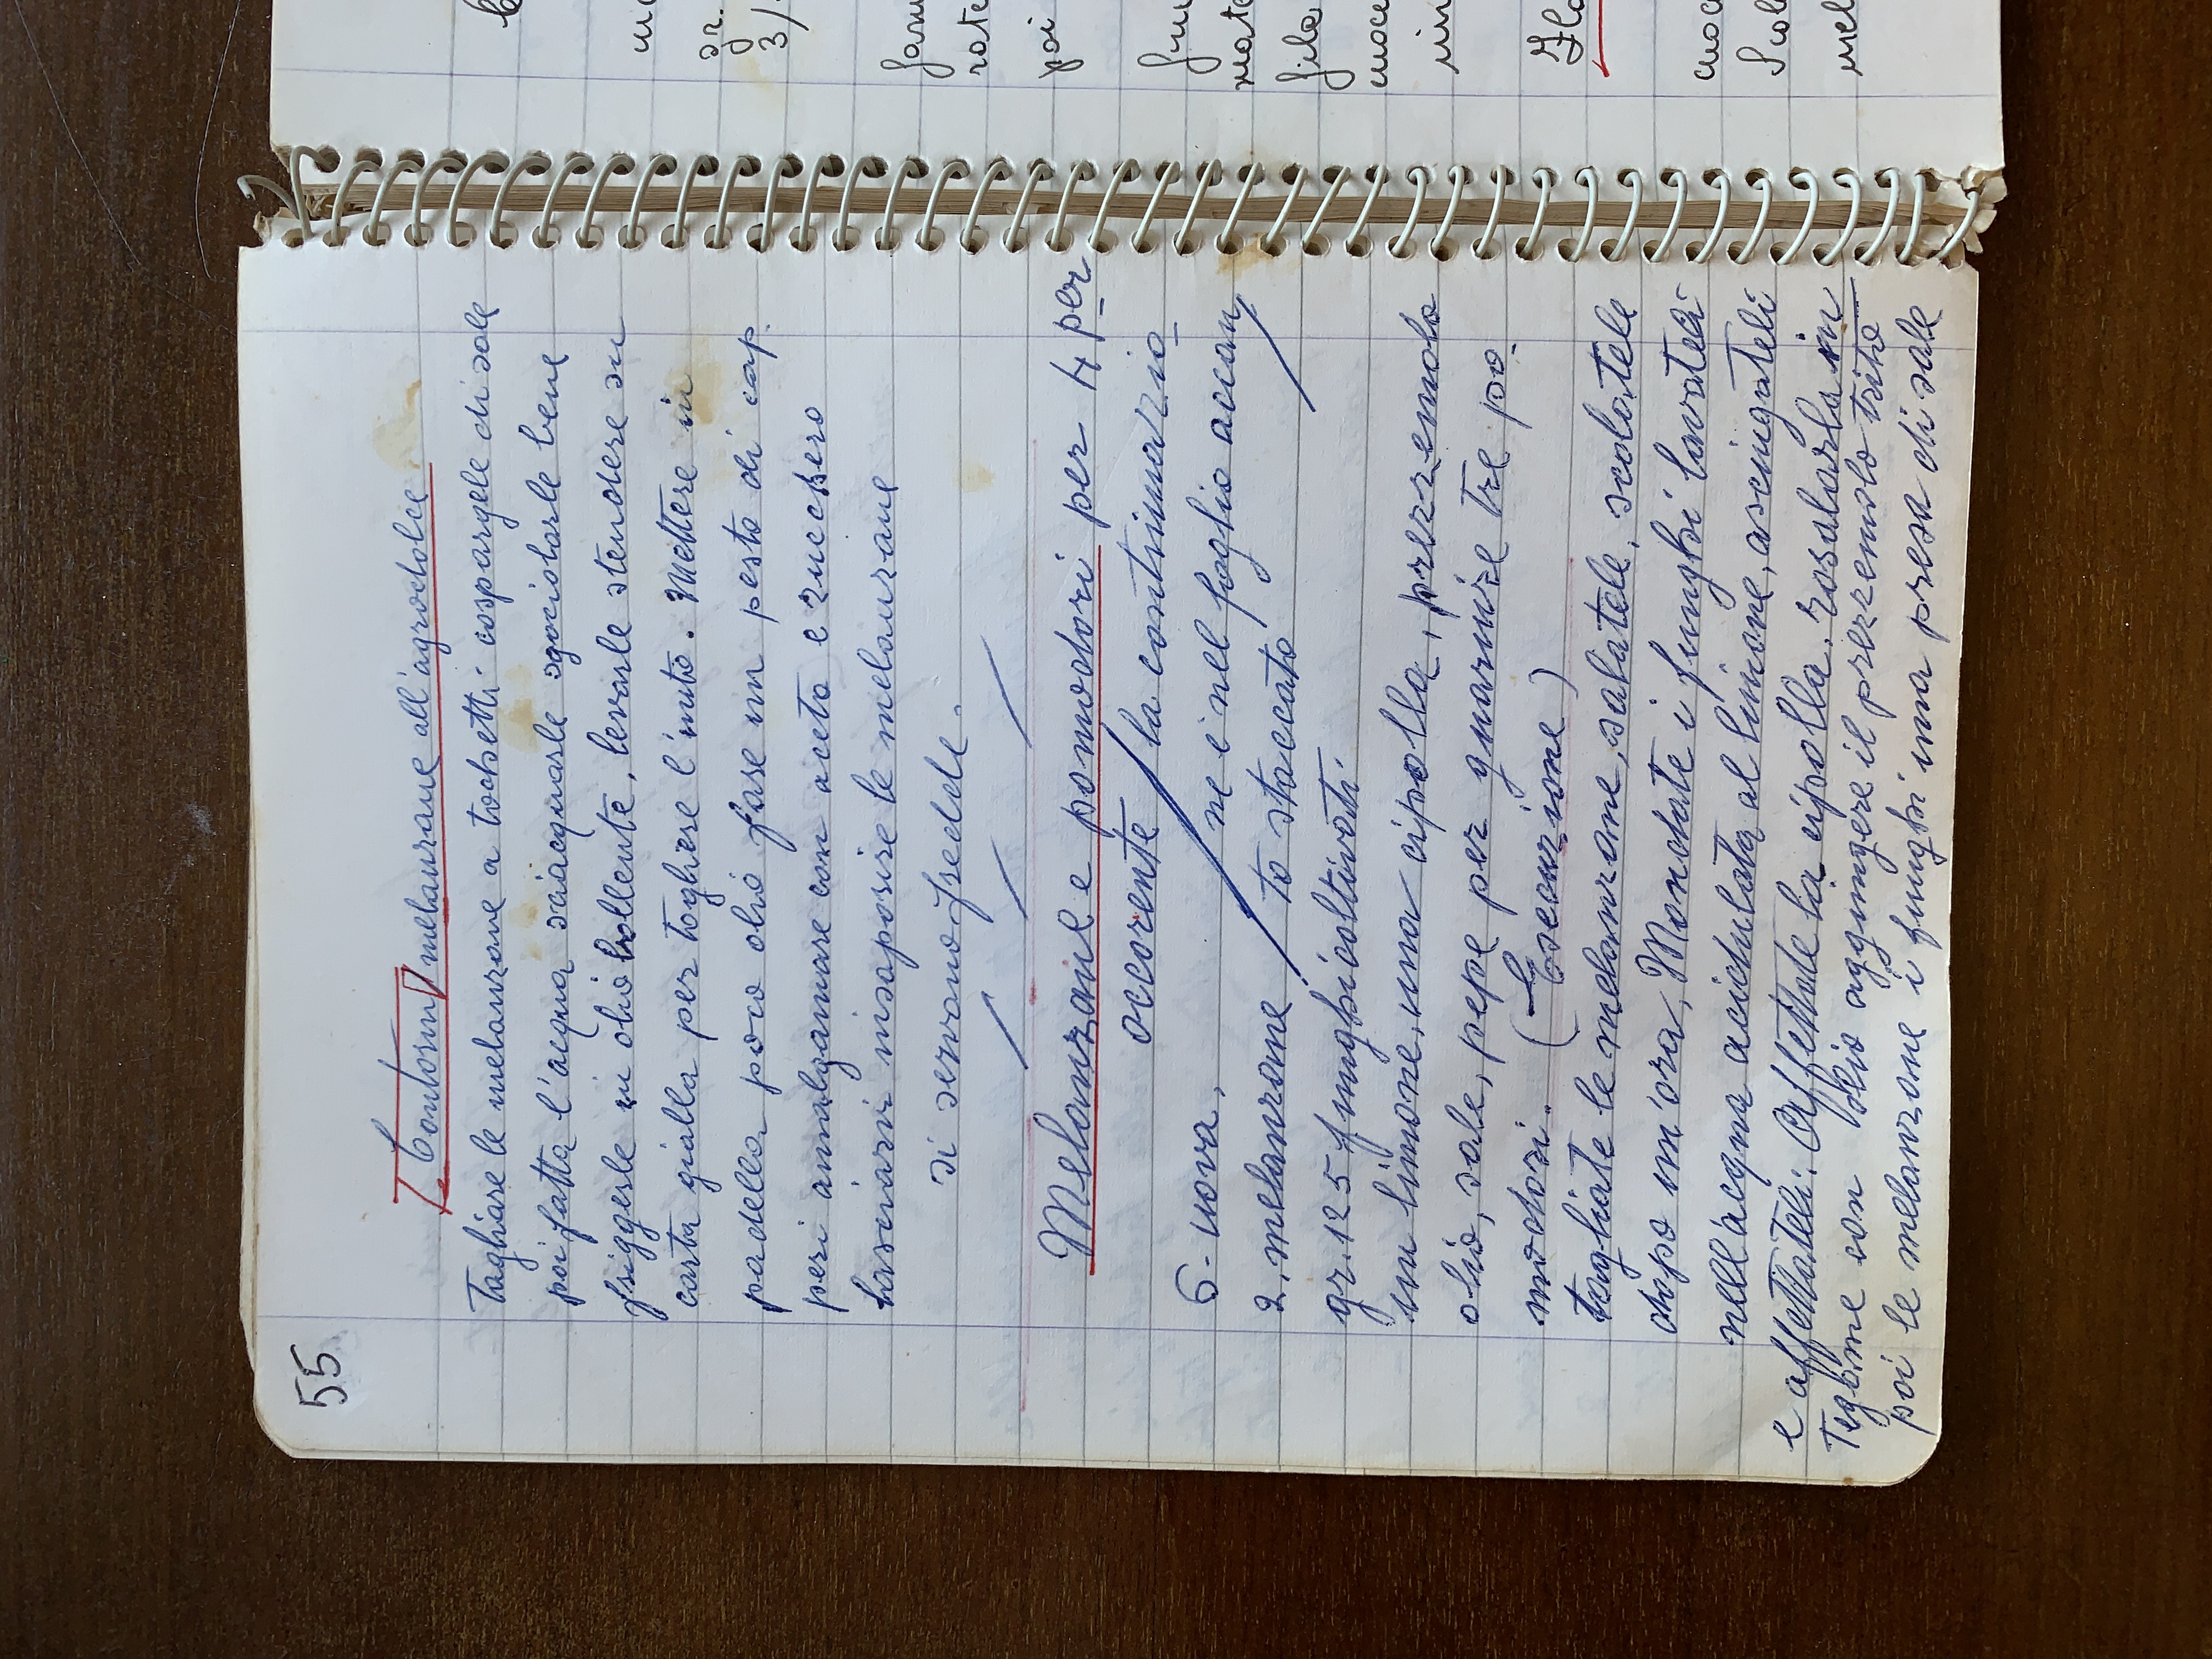 55
Contorni melanzane all'agrodolce
Tagliare le melanzane a tochetti cospargele di sale
poi fatta l'acqua sciacquarle sgociolarle bene
friggerle in olio bollente, levarle stendere su
carta gialla per togliere l'unto. Mettere in
padella poco olio fare un pesto di cap-
peri amalgamare con aceto e zucchero
lasciarvi insaporire le melanzane
si servano fredde.
Melanzane e pomodori per 4 per
occorente / la continuazio-
6 - uova, ne è nel foglio accan
2, melanzane / to staccato
gr. 125 funghi coltivati
un limone, una cipolla, prezzemolo
olio, sale, pepe per guarnire tre po-
modori. (Esecuzione)
tagliate le melanzane, salatele, scolatele
dopo un'ora, Mondate i funghi lavateli
nell'acqua acidulata al limone, asciugateli
e affettateli: Affettate la cipolla. rosalarla in
Tegame con olio aggiungere il prezzemolo trito
poi le melanzane i funghi una presa di sale
gr.
3/
poi
in